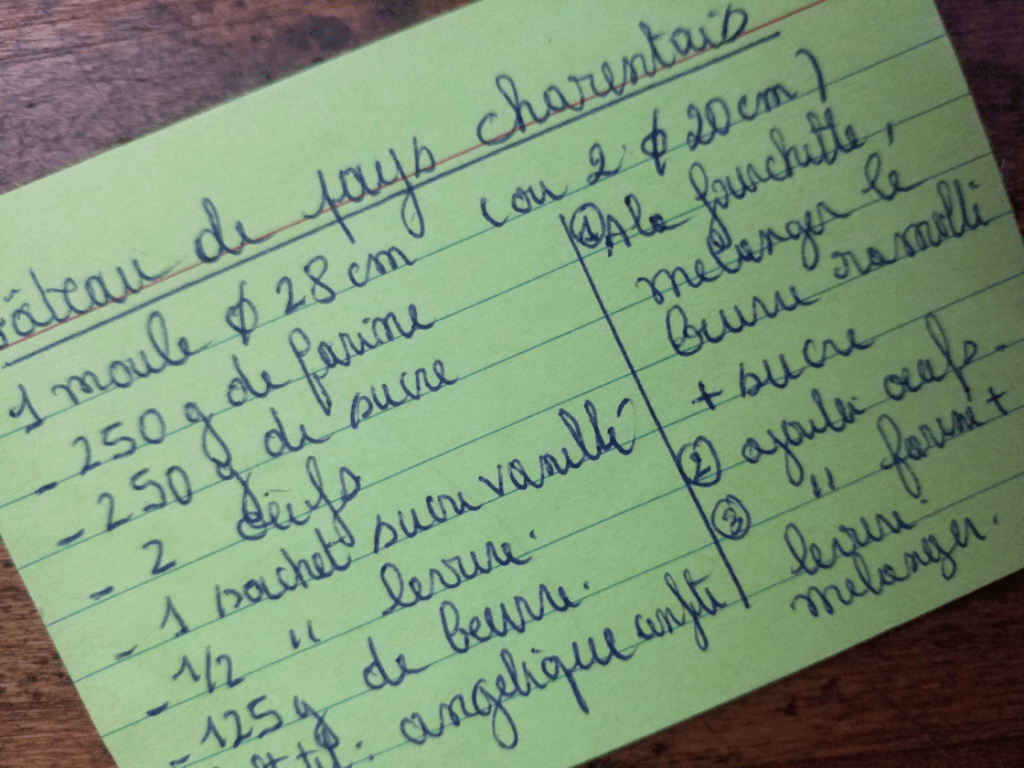 Gâteau de pays charentais
1 moule ϕ 28 cm (ou 2 ϕ 20 cm)
- 250 g de farine
- 250 g de sucre
- 2 œufs
- 1 sachet sucre vanillé
- 1/2 " levure.
- 125 g de beurre.
angelique confite
① A la fourchette,
melanger le
beurre ramolli
+ sucre
② ajouter œufs.
③ " farine +
levure
melanger.